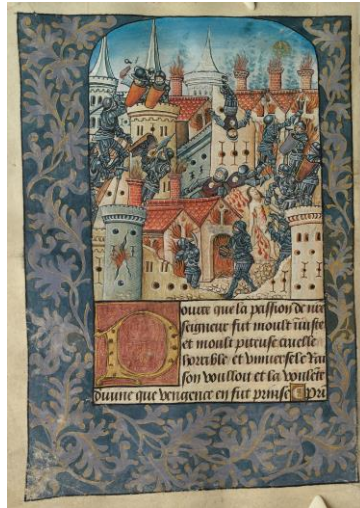 Pource que la passion de nre
seigneur fut moult iniuste
et moult piteuse cruelle
horrible et vniuersele Rai
son voulloit et la voulete
diuine que vengence en fut prinse Pri